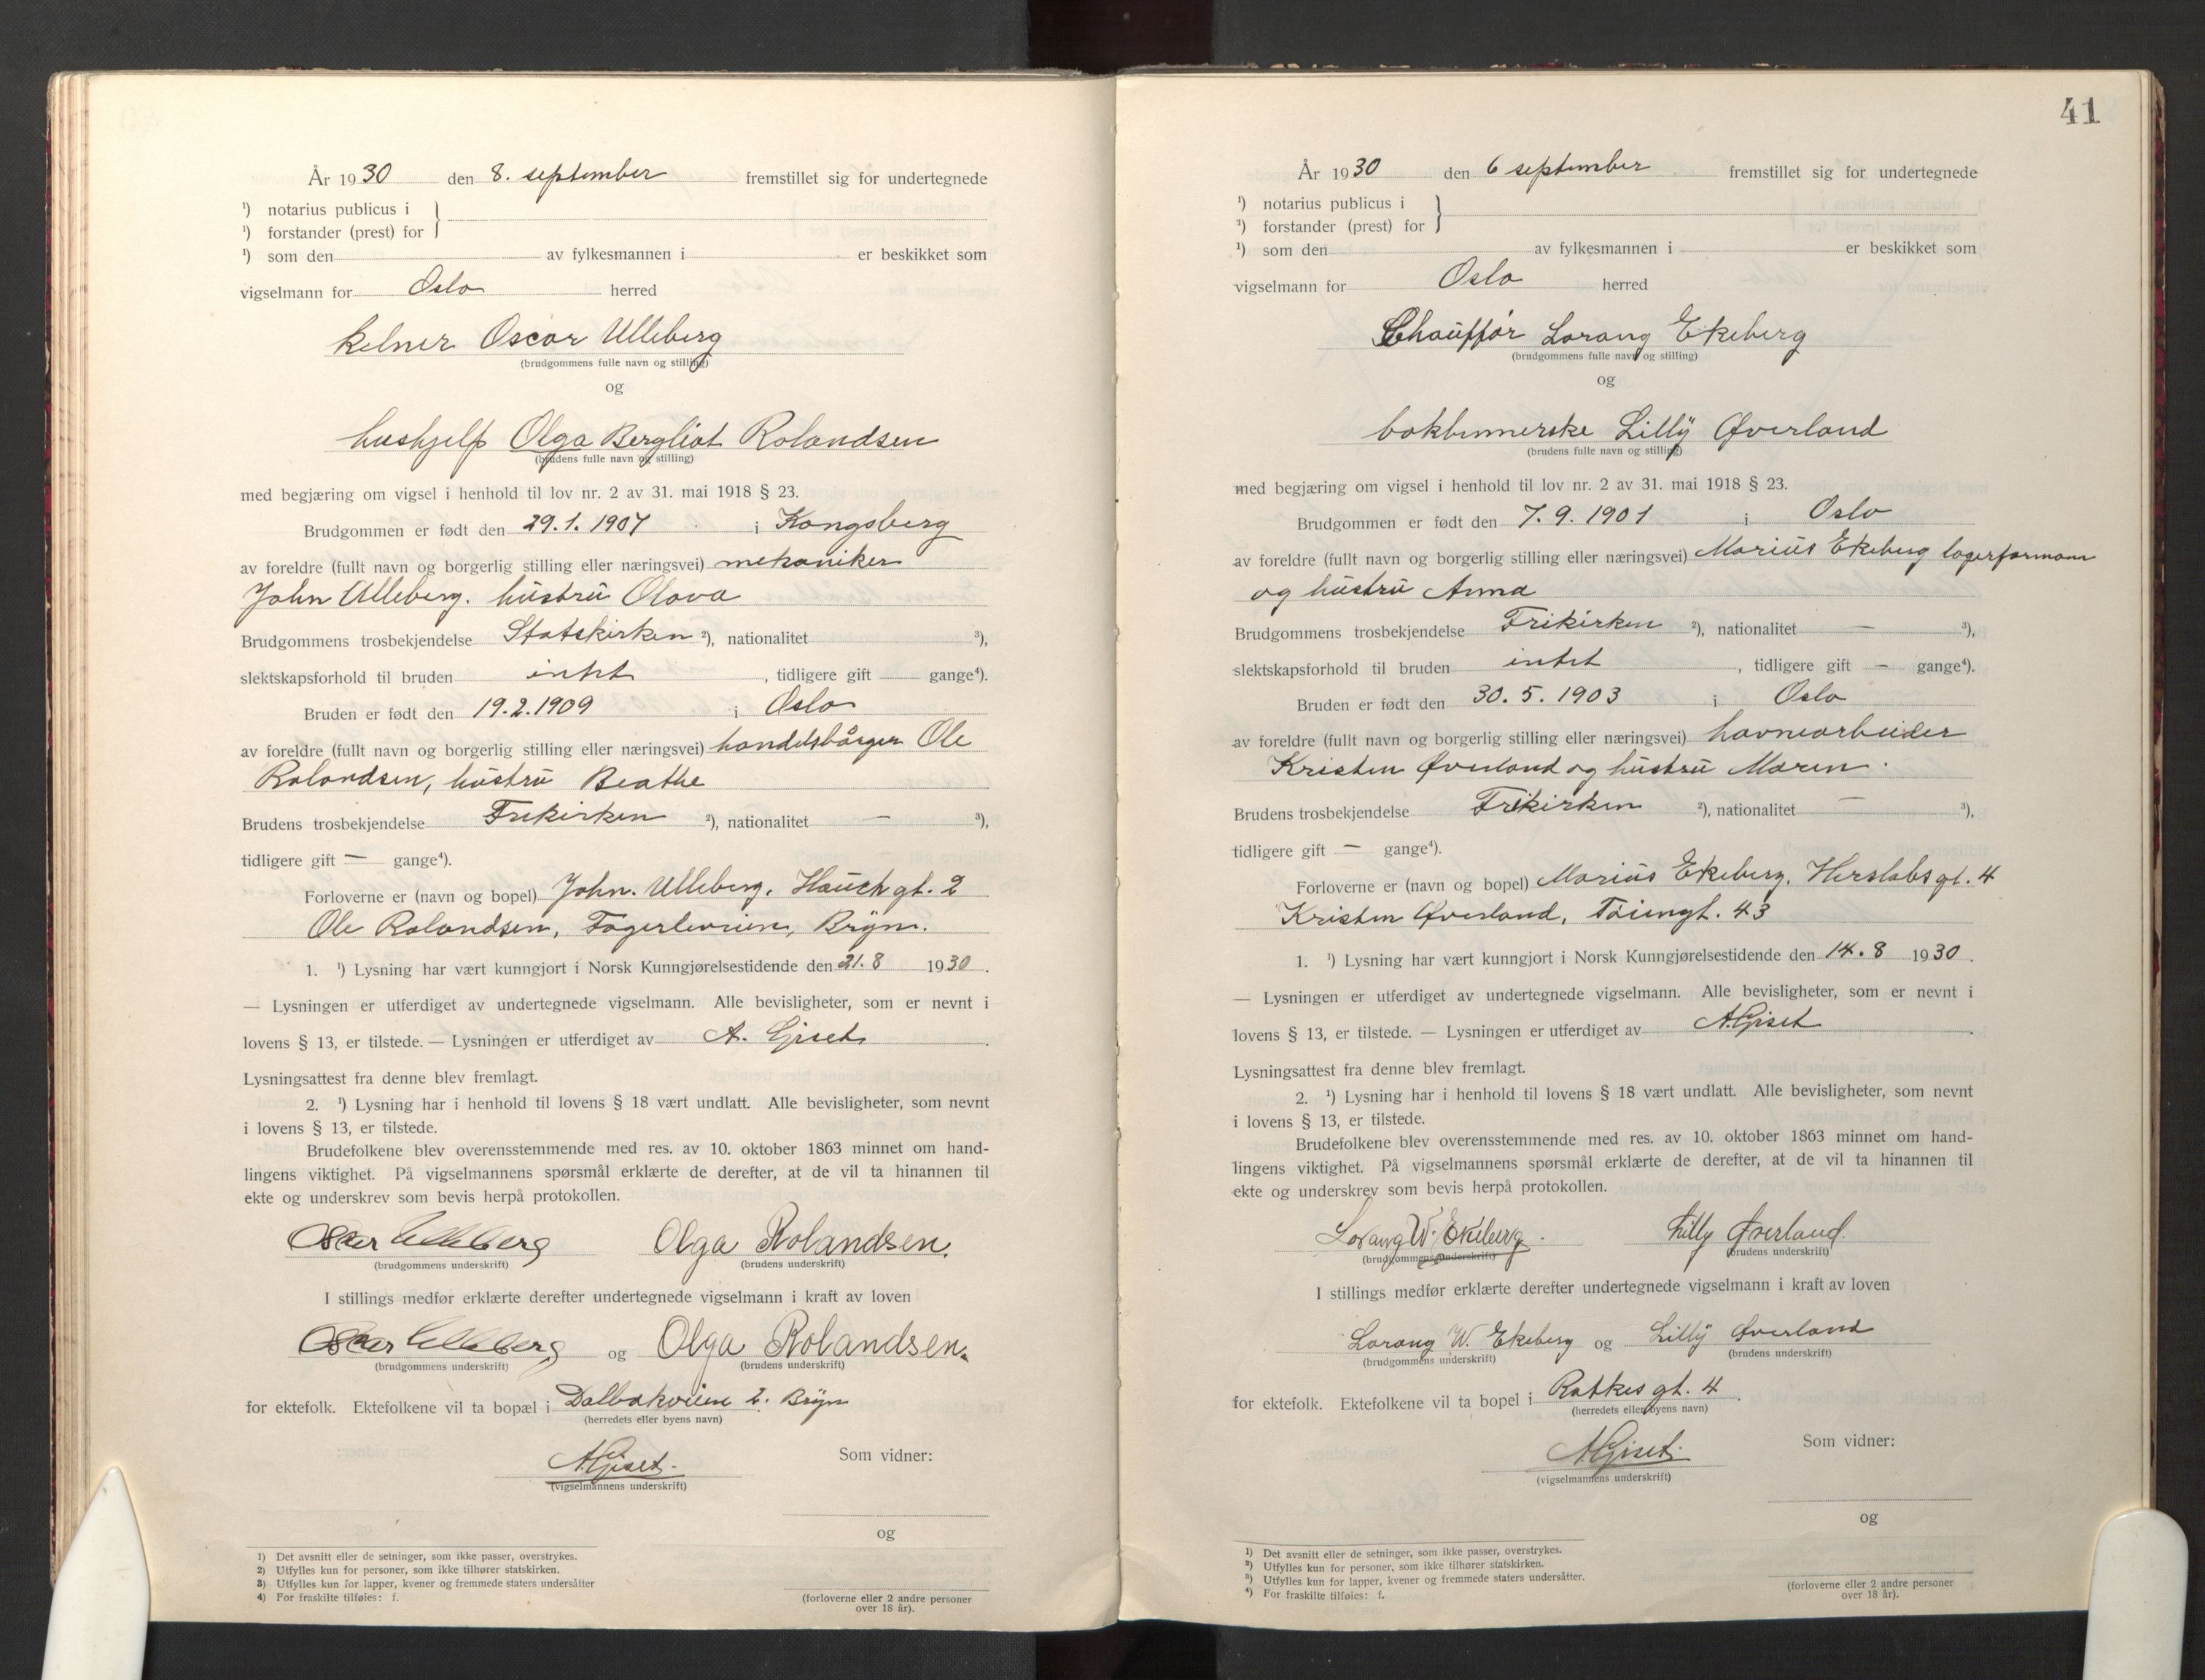 År 1930 den 8. september fremstillet sig for undertegnede
¹) notarius publicus i
¹) forstander (prest) for
¹) som den av fylkesmannen i er beskikket som
vigselmann for Oslo herred
Kelner Oscar Ulleberg
(brudgommens fulle navn og stilling)
og
hushjelp Olga Bergliot Rolandsen
(brudens fulle navn og stilling)
med begjæring om vigsel i henhold til lov nr. 2 av 31. mai 1918 § 23.
Brudgommen er født den 29.1.1907 i Kongsberg
av foreldre (fullt navn og borgerlig stilling eller næringsvei) mekaniker
John Ulleberg. hustru Olava
Brudgommens trosbekjendelse Statskirken ²), nationalitet ³),
slektskapsforhold til bruden intet, tidligere gift gange⁴).
Bruden er født den 19.2.1909 i Oslo
av foreldre (fullt navn og borgerlig stilling eller næringsvei) handelsbårger Ole
Rolandsen, hustru Beathe
Brudens trosbekjendelse Frikirken ²), nationalitet — ³),
tidligere gift — gange⁴).
Forloverne er (navn og bopel) John. Ulleberg, Hauch gt. 2
Ole Rolandsen, Fagerliveien, Bryn.
1. ¹) Lysning har vært kunngjort i Norsk Kunngjørelsestidende den 21.8 1930.
— Lysningen er utferdiget av undertegnede vigselmann. Alle bevisligheter, som er nevnt i
lovens § 13, er tilstede. — Lysningen er utferdiget av A. Gjset.
Lysningsattest fra denne blev fremlagt.
2. ¹) Lysning har i henhold til lovens § 18 vært undlatt. Alle bevisligheter, som nevnt
i lovens § 13, er tilstede.
Brudefolkene blev overensstemmende med res. av 10. oktober 1863 minnet om hand-
lingens viktighet. På vigselmannens spørsmål erklærte de derefter, at de vil ta hinannen til
ekte og underskrev som bevis herpå protokollen.
Oscar Ulleberg Olga Rolandsen.
(brudgommens underskrift) (brudens underskrift)
I stillings medfør erklærte derefter undertegnede vigselmann i kraft av loven
Oscar Ulleberg og Olga Rolandsen.
(brudgommens underskrift) (brudens underskrift)
for ektefolk. Ektefolkene vil ta bopæl i Dalbakveien 2. Bryn
(herredets eller byens navn)
A Gjset. Som vidner:
(vigselmannens underskrift)
og
1) Det avsnitt eller de setninger, som ikke passer, overstrykes.
2) Utfylles kun for personer, som ikke tilhører statskirken.
3) Utfylles kun for lapper, kvener og fremmede staters undersåtter
4) For fraskilte tilføies: f.
(forloverne eller 2 andre personer
over 18 år).
41
År 1930 den 6 september fremstillet sig for undertegnede
¹) notarius publicus i
¹) forstander (prest) for
¹) som den av fylkesmannen i er beskikket som
vigselmann for Oslo herred
Chauffør Lorang Ekeberg
(brudgommens fulle navn og stilling)
og
bokbinnerske Lilly Øverland
(brudens fulle navn og stilling)
med begjæring om vigsel i henhold til lov nr. 2 av 31. mai 1918 § 23.
Brudgommen er født den 7.9.1901 i Oslo
av foreldre (fullt navn og borgerlig stilling eller næringsvei) Marius Ekeberg lagerformann
og hustru Anna
Brudgommens trosbekjendelse Frikirken ²), nationalitet — ³),
slektskapsforhold til bruden intet, tidligere gift — gange⁴).
Bruden er født den 30.5.1903 i Oslo
av foreldre (fullt navn og borgerlig stilling eller næringsvei) havnearbeider
Kristen Øverland og hustru Maren.
Brudens trosbekjendelse Frikirken ²), nationalitet — ³),
tidligere gift — gange⁴).
Forloverne er (navn og bopel) Marius Ekeberg. Herslebsgt. 4
Kristen Øverland, Tøiengt. 43
1. ¹) Lysning har vært kunngjort i Norsk Kunngjørelsestidende den 14.8 1930.
— Lysningen er utferdiget av undertegnede vigselmann. Alle bevisligheter, som er nevnt i
lovens § 13, er tilstede. — Lysningen er utferdiget av A Gjset.
Lysningsattest fra denne blev fremlagt.
2. ¹) Lysning har i henhold til lovens § 18 vært undlatt. Alle bevisligheter, som nevnt
i lovens § 13, er tilstede.
Brudefolkene blev overensstemmende med res. av 10. oktober 1863 minnet om hand-
lingens viktighet. På vigselmannens spørsmål erklærte de derefter, at de vil ta hinannen til
ekte og underskrev som bevis herpå protokollen.
Lorang W. Ekeberg. Lilly Øverland.
(brudgommens underskrift) (brudens underskrift)
I stillings medfør erklærte derefter undertegnede vigselmann i kraft av loven
Lorang W. Ekeberg og Lilly Øverland
(brudgommens underskrift) (brudens underskrift)
for ektefolk. Ektefolkene vil ta bopel i Ratkes gt. 4.
(herredets eller byens navn)
A Gjset. Som vidner:
(vigselmannens underskrift)
og
¹) Det avsnitt eller de setninger, som ikke passer, overstrykes.
²) Utfylles kun for personer, som ikke tilhører statskirken.
³) Utfylles kun for lapper, kvener og fremmede staters undersåtter.
⁴) For fraskilte tilføies: f.
(forloverne eller 2 andre personer
over 18 år).